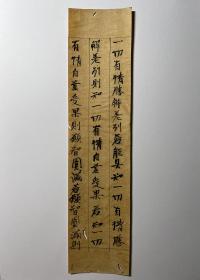 一切有情勝解差別若能具知一切有情勝
解差別則知一切有情自業受果若知一切
有情自業受果則願智圓滿若願智圓滿則